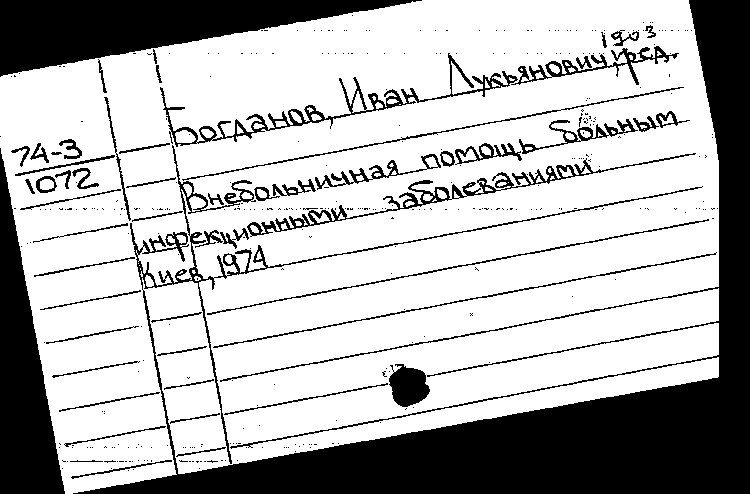 1903
Богданов, Иван Лукьянович, ред.
74-3
1072
Внебольничная помощь больным
инфекционными заболеваниями.
Киев, 1974